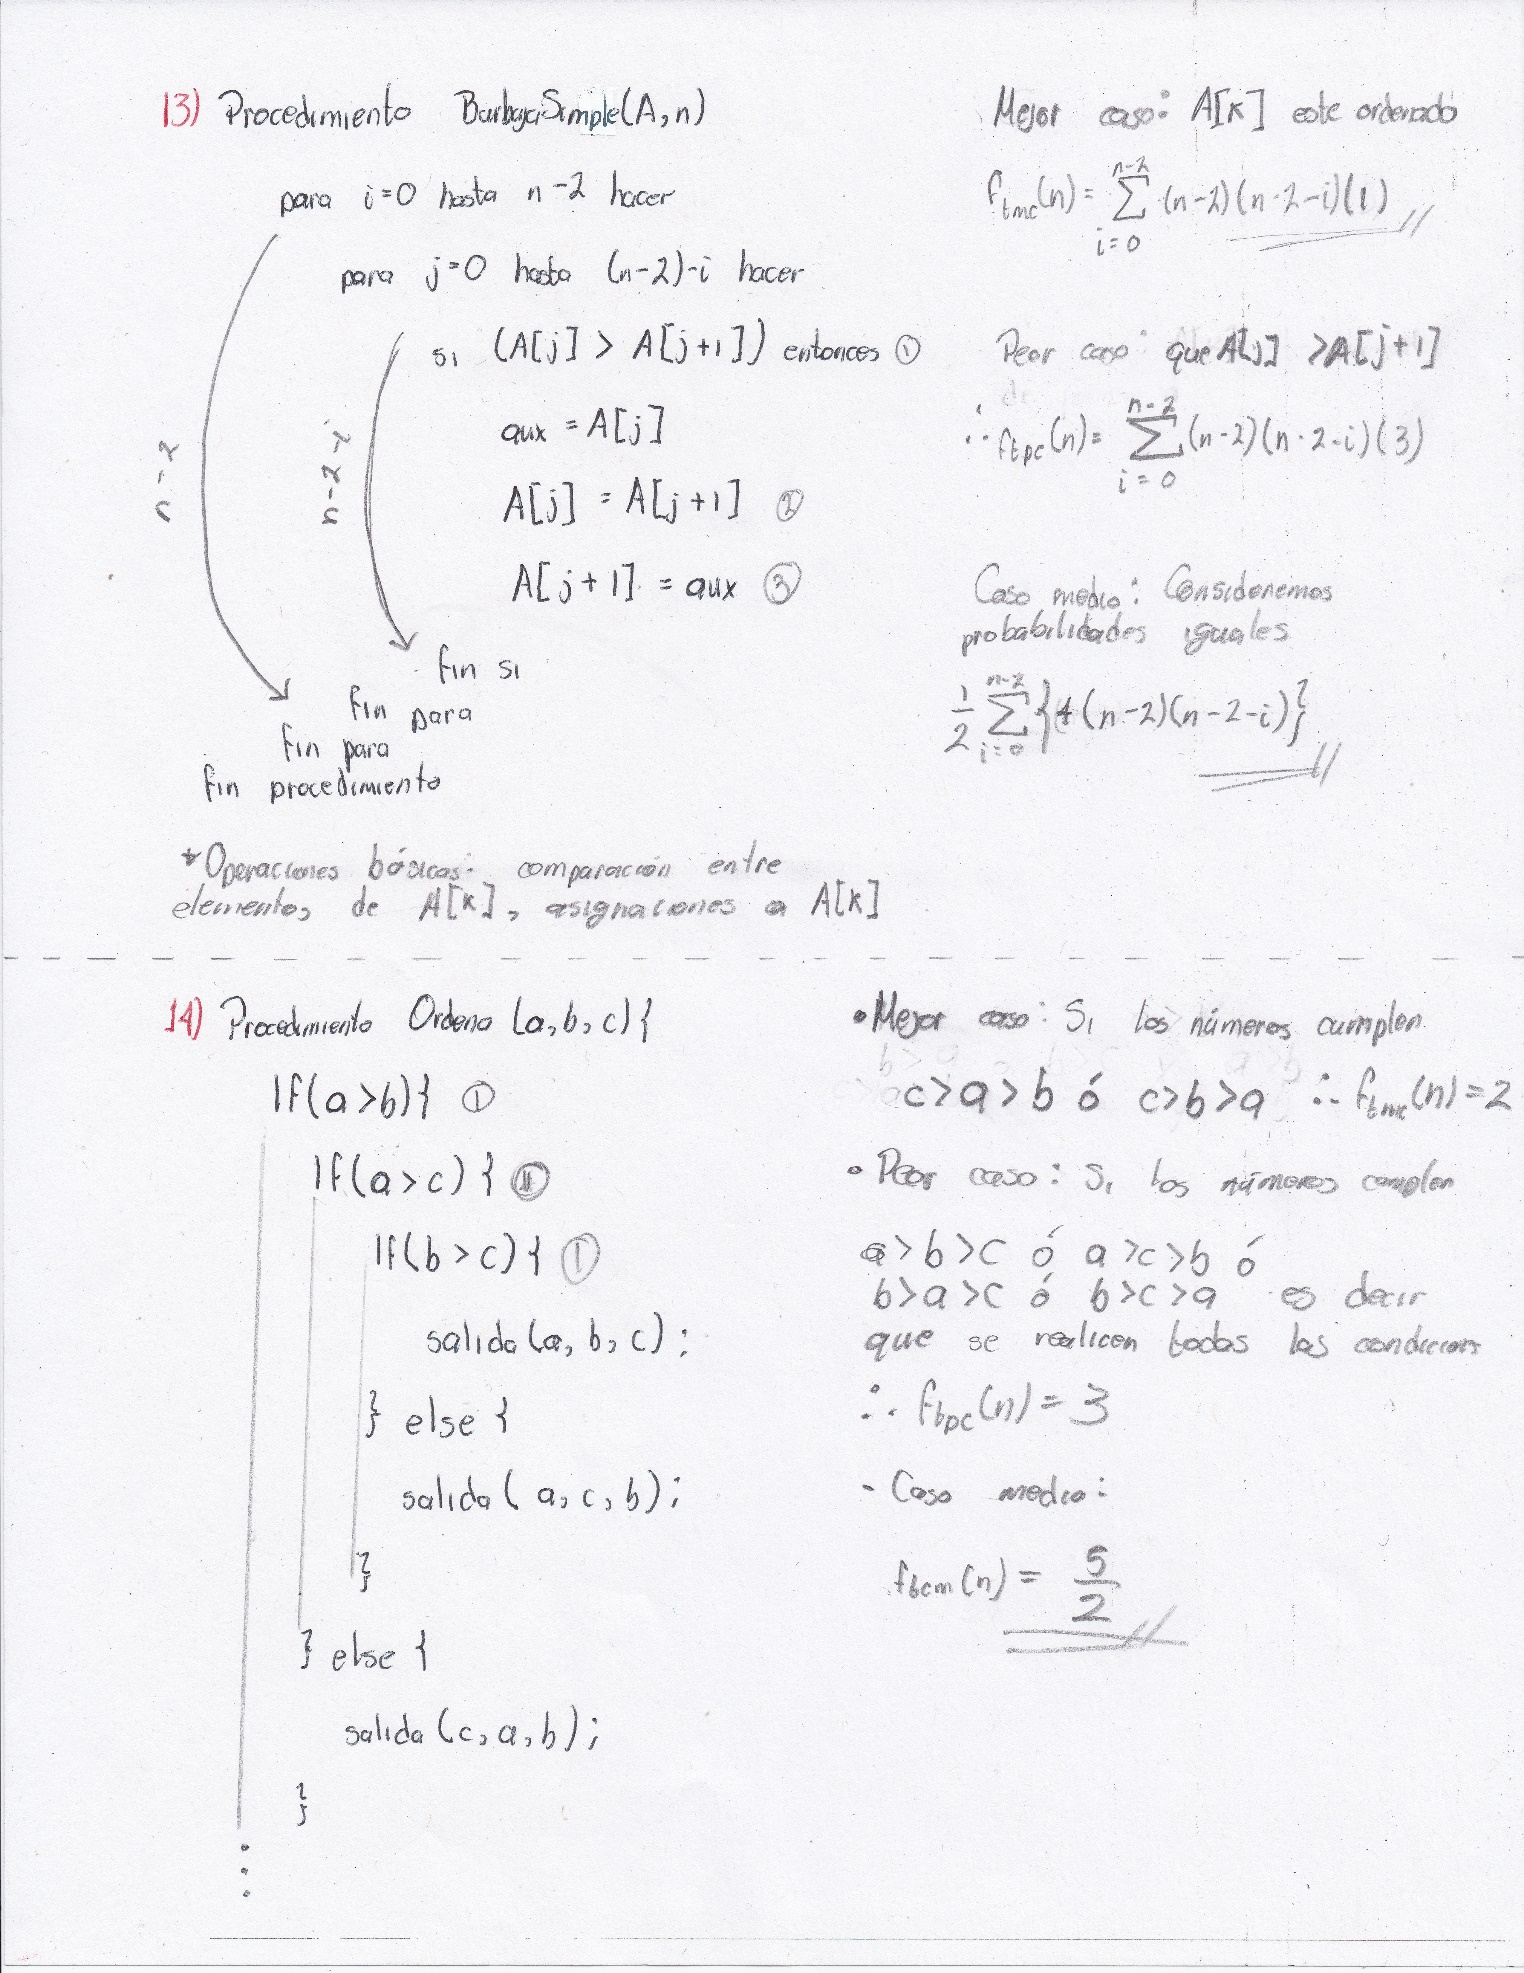 13) Procedimiento BurbujaSimple(A,n)
para i=0 hasta n-2 hacer
para j=0 hasta (n-2)-i hacer
si (A[j] > A[j+1]) entonces ①
aux = A[j]
A[j] = A[j+1] ②
A[j+1] = aux ③
n-2
n-2-i
fin si
fin para
fin para
fin procedimiento
*Operaciones básicas: comparación entre
elementos de A[k], asignaciones a A[k]
Mejor caso: A[k] este ordenado
f_tmc(n) = ∑_{i=0}^{n-2} (n-2)(n-2-i)(1)
Peor caso: que A[j] > A[j+1]
∴ f_tpc(n) = ∑_{i=0}^{n-2} (n-2)(n-2-i)(3)
Caso medio: Consideremos
probabilidades iguales
1/2 ∑_{i=0}^{n-2} {4(n-2)(n-2-i)}
14) Procedimiento Ordena (a,b,c){
If(a>b){ ①
If(a>c) {
If(b>c){ ①
salida(a,b,c);
} else {
salida(a,c,b);
}
} else {
salida(c,a,b);
}
⋮
• Mejor caso: Si los números cumplen
c>a>b ó c>b>a ∴ f_tmc(n)=2
• Peor caso: Si los números cumplen
a>b>c ó a>c>b ó
b>a>c ó b>c>a es decir
que se realicen todas las condiciones
∴ f_tpc(n) = 3
- Caso medio:
f_tcm(n) = 5/2